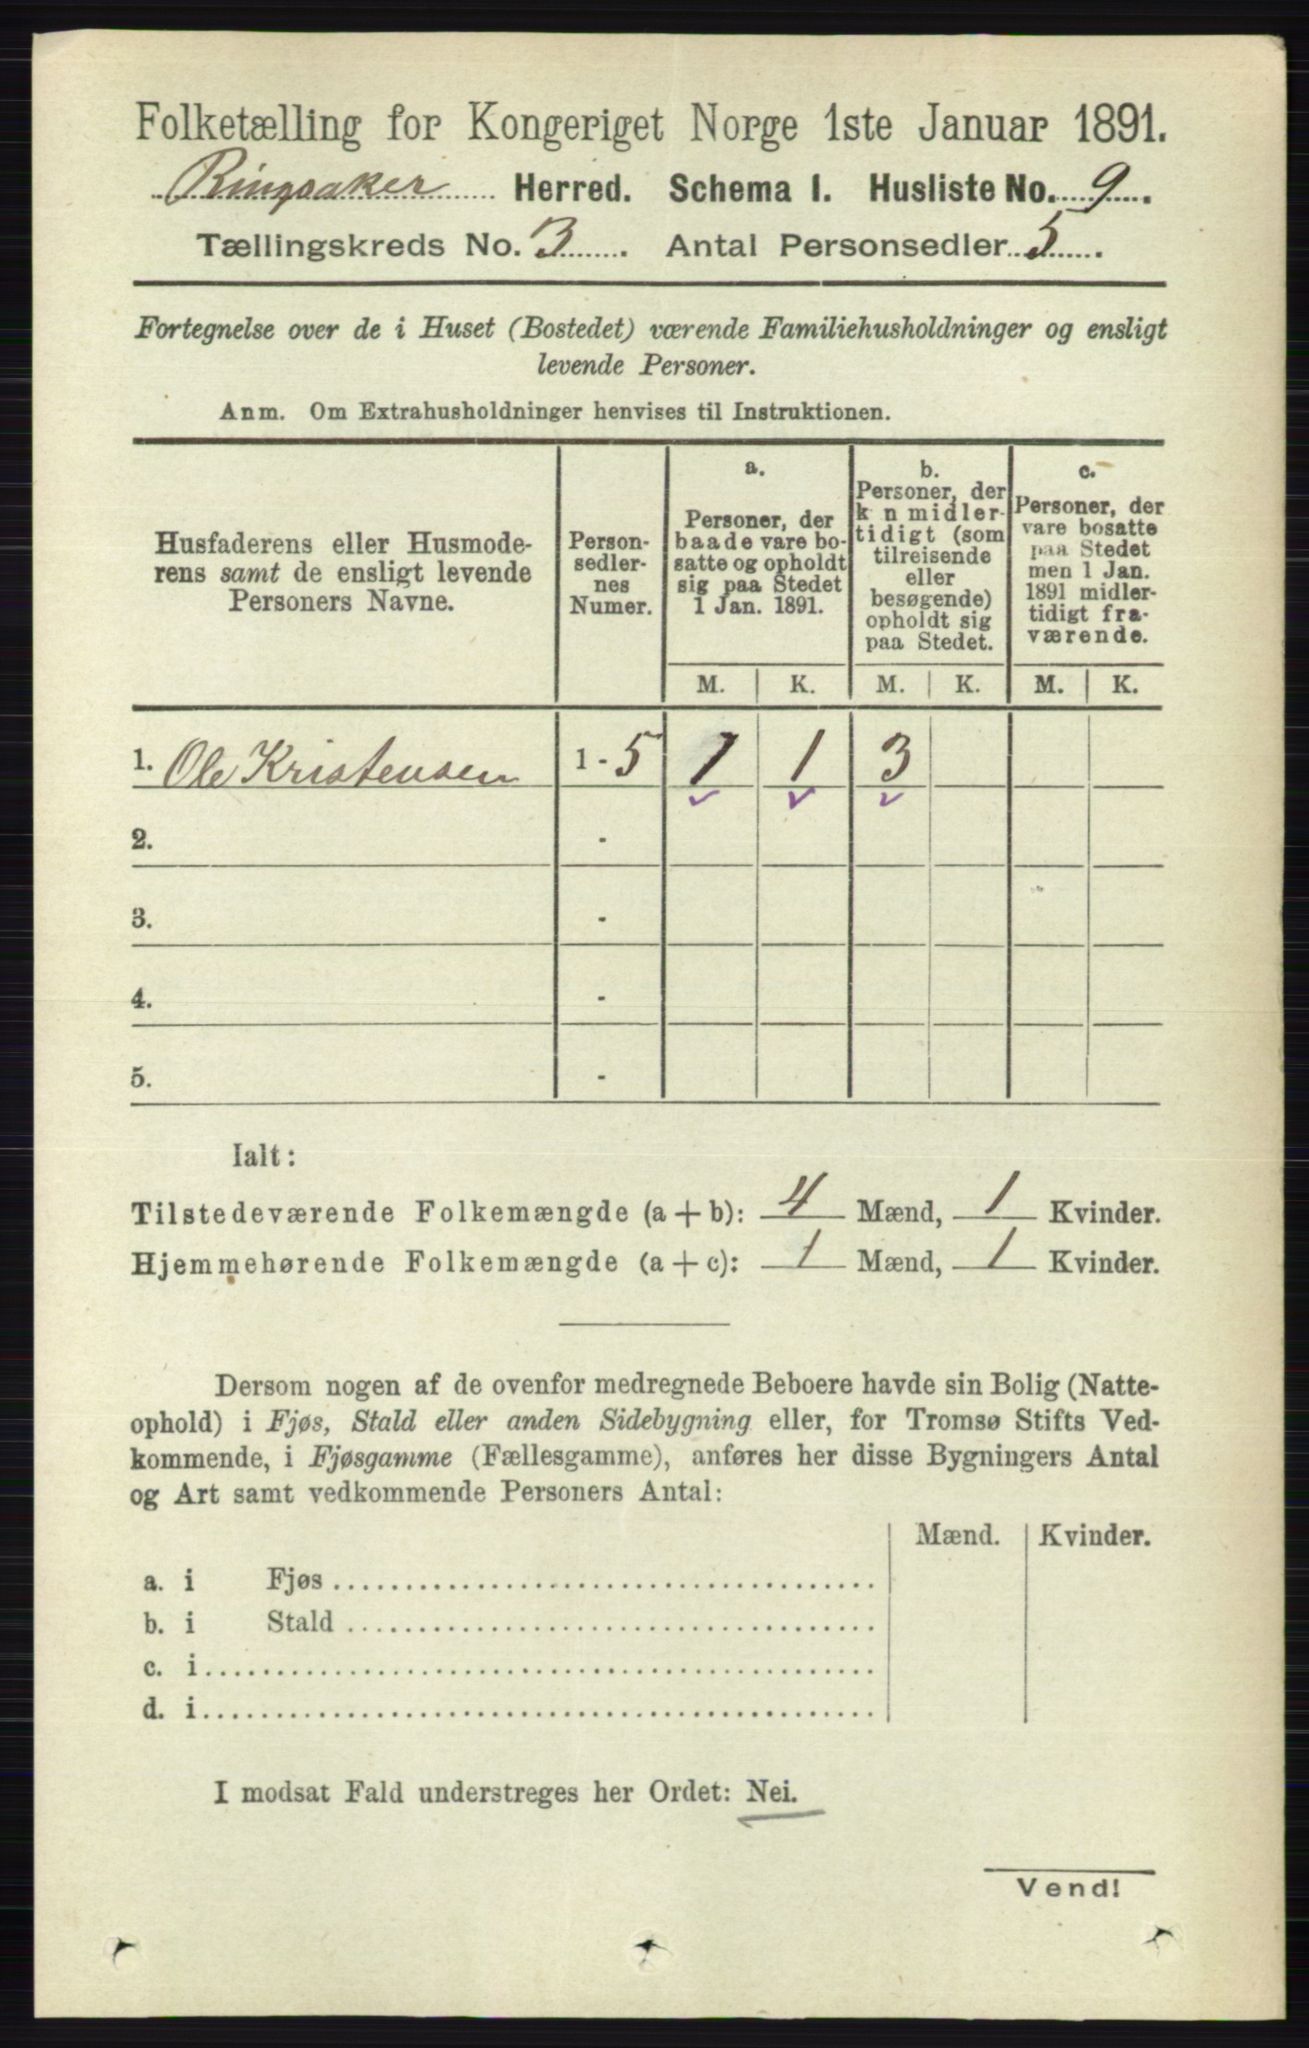 Folketælling for Kongeriget Norge 1ste Januar 1891.
Ringsaker Herred. Schema I. Husliste No. 9.
Tællingskreds No. 3. Antal Personsedler 5.
Fortegnelse over de i Huset (Bostedet) værende Familiehusholdninger og ensligt
levende Personer.
Anm. Om Extrahusholdninger henvises til Instruktionen.
Husfaderens eller Husmode-
rens samt de ensligt levende
Personers Navne.
Person-
sedler-
nes
Numer.
a.
Personer, der
baade vare bo-
satte og opholdt
sig paa Stedet
1 Jan. 1891.
b.
Personer, der
k n midler-
tidigt (som
tilreisende
eller
besøgende)
opholdt sig
paa Stedet.
c.
Personer, der
vare bosatte
paa Stedet
men 1 Jan.
1891 midler-
tidigt fra-
værende.
M. K. M. K. M. K.
1. Ole Kristensen 1 - 5 1 1 3
2. -
3. -
4. -
5. -
Ialt:
Tilstedeværende Folkemængde (a + b): 4 Mænd, 1 Kvinder.
Hjemmehørende Folkemængde (a + c): 1 Mænd, 1 Kvinder.
Dersom nogen af de ovenfor medregnede Beboere havde sin Bolig (Natte-
ophold) i Fjøs, Stald eller anden Sidebygning eller, for Tromsø Stifts Ved-
kommende, i Fjøsgamme (Fællesgamme), anføres her disse Bygningers Antal
og Art samt vedkommende Personers Antal:
Mænd. Kvinder.
a. i Fjøs
b. i Stald
c. i
d. i
I modsat Fald understreges her Ordet: Nei.
Vend!